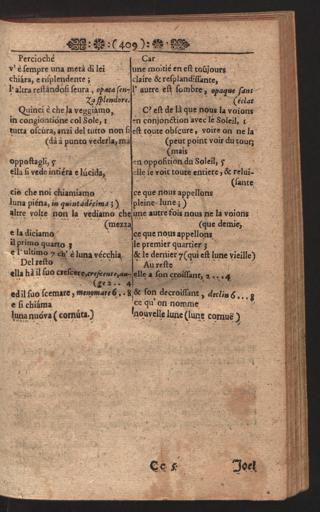 (409)
Percioché
v' è sempre una metà di lei
chiára, e risplendente;
l'altra restándosi scura, opaca sen-
za splendore.
Quinci è che la veggiamo,
in congiontióne col Sole, 1
tutta oscúra, anzi del tutto non si
(dà à punto vederla, ma
oppostagli, 5
ella si vede intiéra e lúcida,
ciò che noi chiamiamo
luna piéna, in quintadécima; )
altre volte non la vediamo che
(mezza
e la diciamo
il primo quarto 3
e l' ultimo 7 ch' è luna vécchia
Del resto
ella hà il suo crescere, crescente, au-
(ge 2 .. 4
ed il suo scemare, menomare 6 .. 8
e si chiáma
luna nuóva (cornúta.)
Car
une moitié en est toûjours
claire & resplandissante,
l' autre est sombre, opaque sans
(éclat
C' est de là que nous la voions
en conjonction avec le Soleil, 1
est toute obscure, voire on ne la
(peut point voir du tour;
(mais
en opposition du Soleil, 5
elle se voit toute entiere, & relui-
(sante
ce que nous appellons
pleine-lune; )
une autre fois nous ne la voions
(que demie,
ce que nous appellons
le premier quartier 3
& le dernier 7 (qui est lune vieille)
Au reste
elle a son croissant, 2 ... 4
& son decroissant, declin 6 ... 8
ce qu' on nomme
nouvelle lune (lune cornuë)
Cc 5
Joel